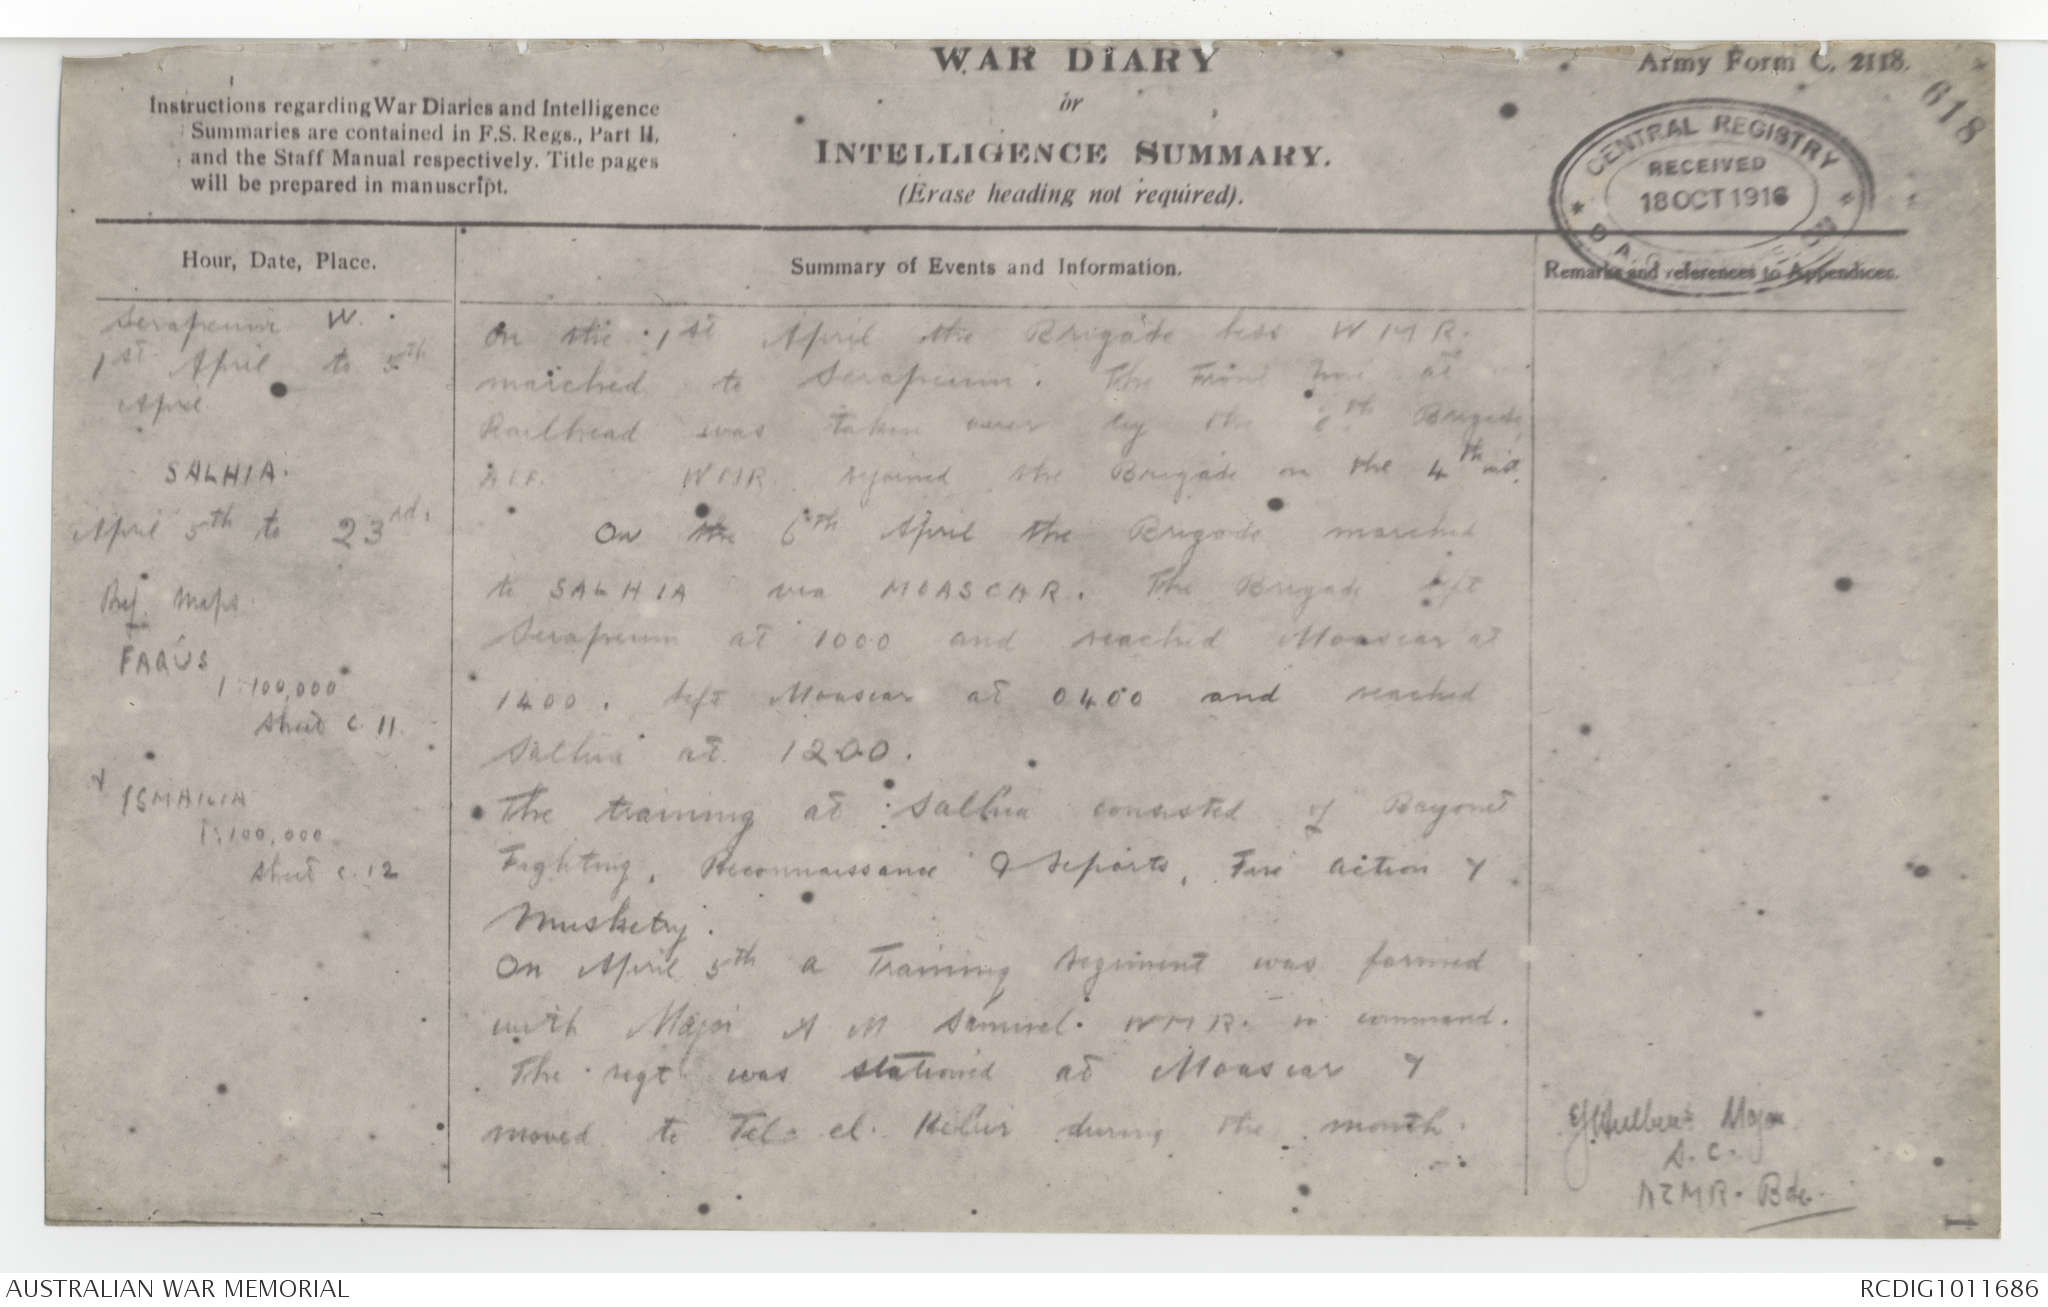 WAR DIARY
or
INTELLIGENCE SUMMARY.
(Erase heading not required).
Army Form C. 2118.
618
Instructions regarding War Diaries and Intelligence
Summaries are contained in F.S. Regs., Part II,
and the Staff Manual respectively. Title pages
will be prepared in manuscript.
CENTRAL REGISTRY
RECEIVED
18 OCT 1916
Hour, Date, Place.
Summary of Events and Information.
Remarks and references to Appendices.
Serapeum W.
1st April to 5th
April
SALHIA.
April 5th to 23rd.
Ref. Maps
FAQUS
1:100,000
Sheet C. 11.
& ISMAILIA
1:100,000
Sheet C. 12
On the 1st April the Brigade less WMR.
marched to Serapeum. The Front line at
Railhead was taken over by the Brigade
WMR rejoined the Brigade on the 4th inst.
On the 6th April the Brigade marched
to SALHIA via MOASCAR. The Brigade left
Serapeum at 1000 and reached Moascar at
1400. left Moascar at 0400 and reached
Salhia at 1200.
The training at Salhia consisted of Bayonet
Fighting, Reconnaissance & reports, Fire action &
Musketry.
On April 5th a Training regiment was formed
with Major A M Samuel. WMR. in command.
The regt was stationed at Moascar &
moved to Tel-el-Kebir during the month.
Major
S.C.
NZMR. Bde
1
AUSTRALIAN WAR MEMORIAL
RCDIG1011686